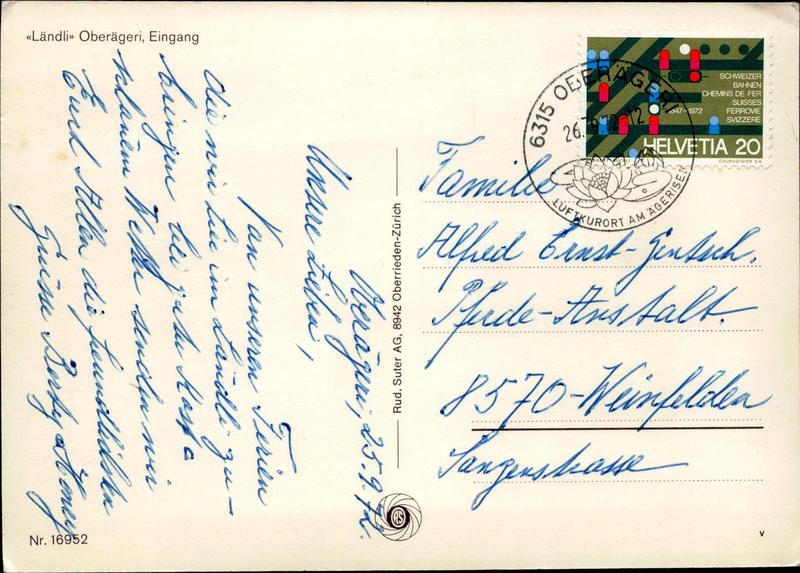 «Ländli» Oberägeri, Eingang
Oberägeri, 25.9.72.
Unsere Lieben,
Von unseren Ferien
die wir hier im Ländli zu-
bringen bei gute Kost &
schönem Wetter senden wir
Euch Allen die freundlichsten
Grüsse
Nr. 16952
Rud. Suter AG, 8942 Oberrieden-Zürich
RS
6315 OBERÄGERI
26.-9.72-12
LUFTKURORT AM ÄGERISEE
SCHWEIZER
BAHNEN
CHEMINS DE FER
SUISSES
FERROVIE
SVIZZERE
1847-1972
HELVETIA 20
COURVOISIER S.A.
Familie
Alfred Ernst-Gentsch.
Pferde-Anstalt.
8570-Weinfelden
Tangenstrasse
v